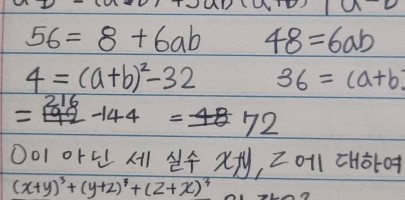 56 = 8 + 6ab 48 = 6ab
4 = (a+b)² - 32 36 = (a+b)
216
= 192 - 144 = 48 72
0이 아닌 세 실수 x, y, z에 대하여
(x+y)³ + (y+z)³ + (z+x)³